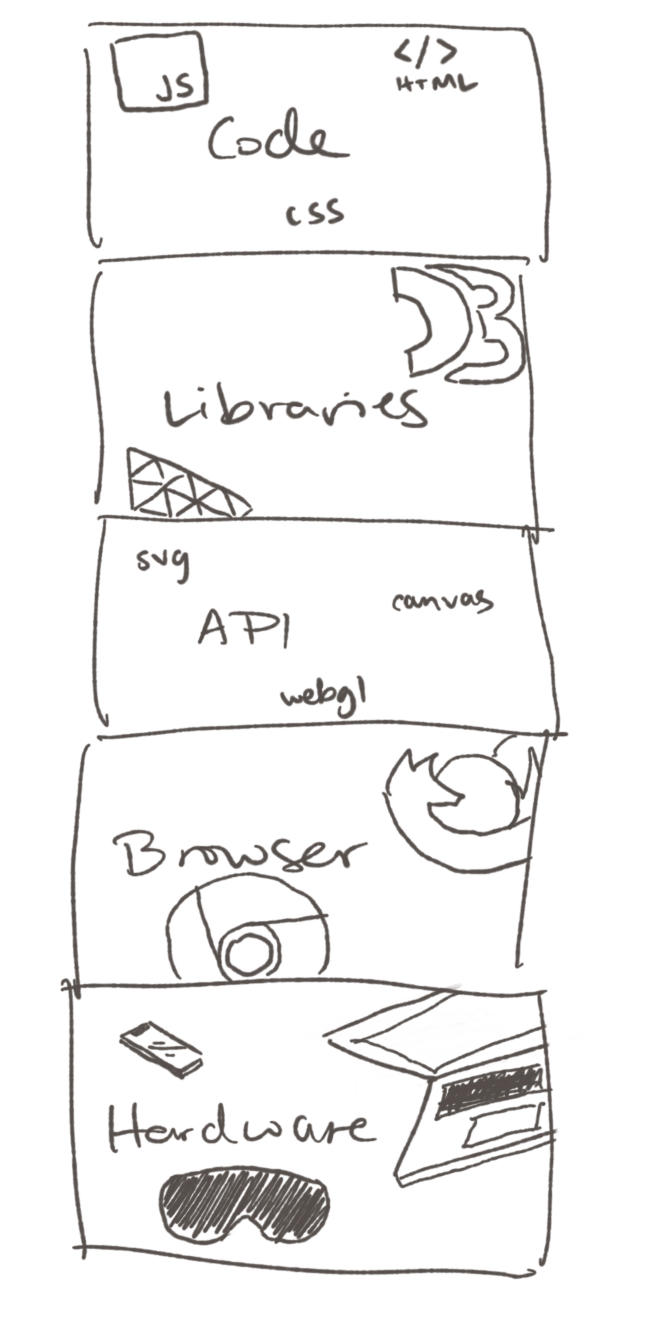 JS
</>
HTML
Code
css
D3
Libraries
svg
canvas
API
webgl
Browser
Hardware